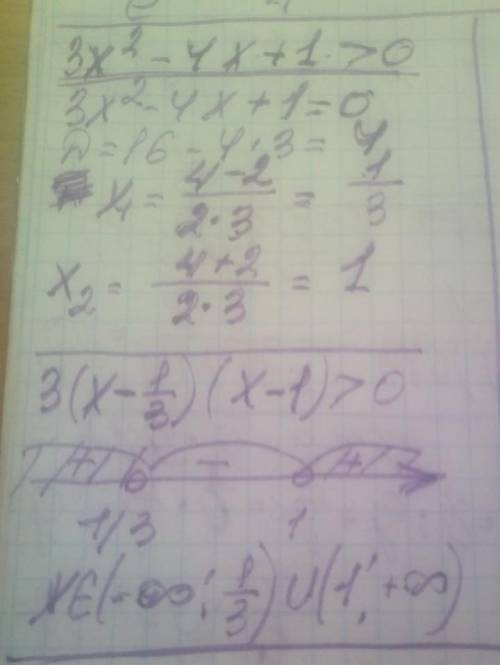 3x² - 4x + 1 > 0
3x² - 4x + 1 = 0
D = 16 - 4·3 = 4
x₁ = (4-2)/(2·3) = 1/3
x₂ = (4+2)/(2·3) = 1
3(x - 1/3)(x - 1) > 0
+ - +
1/3 1
x∈(-∞; 1/3)∪(1; +∞)